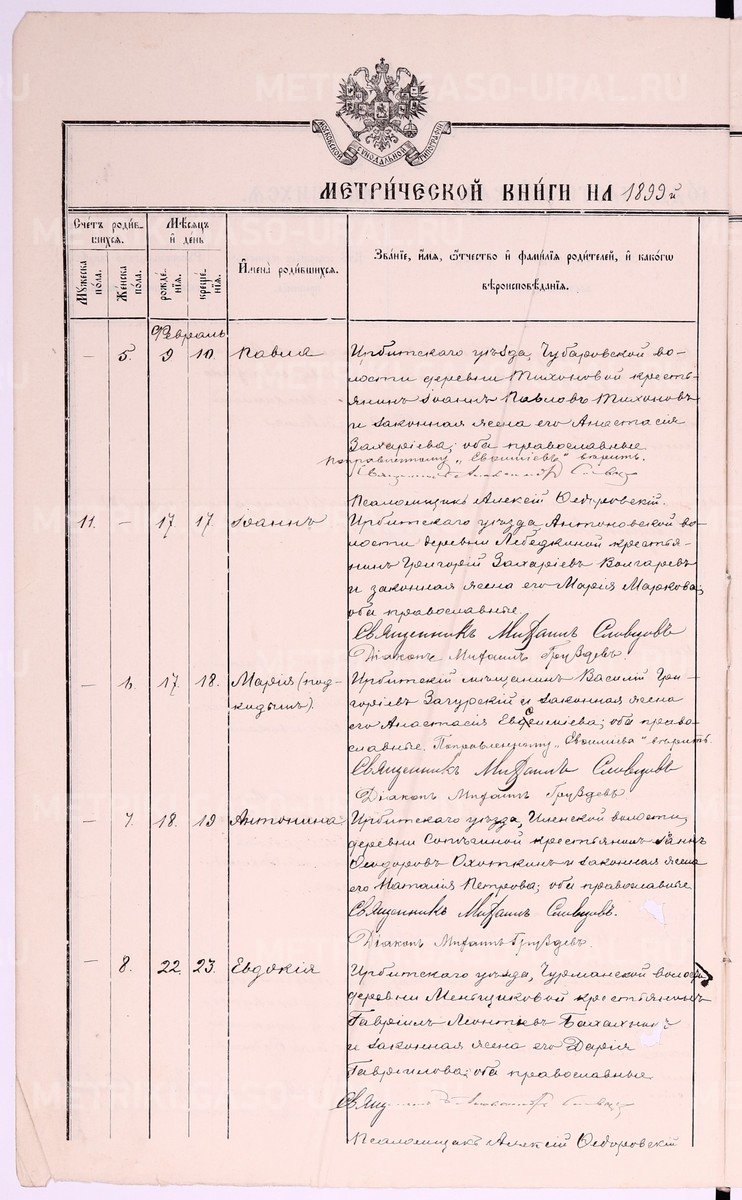 МОСКОВСКОЙ СѴНОДАЛЬНОЙ ТИПОГРАФІИ
МЕТРИ́ЧЕСКОЙ КНИ́ГИ НА 1899й
Сче́тъ роди́вшихся.
Му́жеска по́ла.
Же́нска по́ла.
Мѣ́сяцъ и҆ день
рожде́нїѧ.
креще́нїѧ.
И҆мена̀ роди́вшихся.
Зва́нїе, и҆́мѧ, ѻ҆́тчество и҆ фами́лїѧ роди́телей, и҆ како́гѡ вѣроисповѣ́данїѧ.
Февраль
— 5. 9 10 Павла Ирбитскаго уѣзда, Чубаровской во-
лости деревни Тихоновой кресть-
янинъ Іоаннъ Павловъ Тихоновъ
и законная жена его Анастасія
Захаріева; оба православные
Поправленному „ вѣрить.
Псаломщикъ Алексій Ѳедоровскій.
11. — 17. 17. Іоаннъ Ирбитскаго уѣзда, Антоновской во-
лости деревни Лебедкиной крестья-
нинъ Григорій Захаріевъ Волгаревъ
и законная жена его Марія Маркова;
оба православные
Священникъ Михаилъ Словцовъ
Діаконъ Михаилъ Груздевъ.
— 6. 17. 18. Марія (под- Ирбитскій мѣщанинъ Василій Гри-
кидышъ). горіевъ Загурскій и законная жена
его Анастасія Евѳиміева; оба право-
славные. Поправленному „Евѳиміева“ вѣрить.
Священникъ Михаилъ Словцовъ
Діаконъ Михаилъ Груздевъ
— 7. 18. 19 Антонина Ирбитскаго уѣзда, волости,
деревни крестьянинъ Іоаннъ
Ѳеодоровъ Охоткинъ и законная жена
его Наталія Петрова; оба православные
Священникъ Михаилъ Словцовъ.
Діаконъ Михаилъ Груздевъ.
— 8. 22 23. Евдокія Ирбитскаго уѣзда, волости
деревни Меньщиковой крестьянинъ
Гавріилъ Леонтьевъ
и законная жена его Дарія
Гавріилова; оба православные
Псаломщикъ Алексій Ѳедоровскій